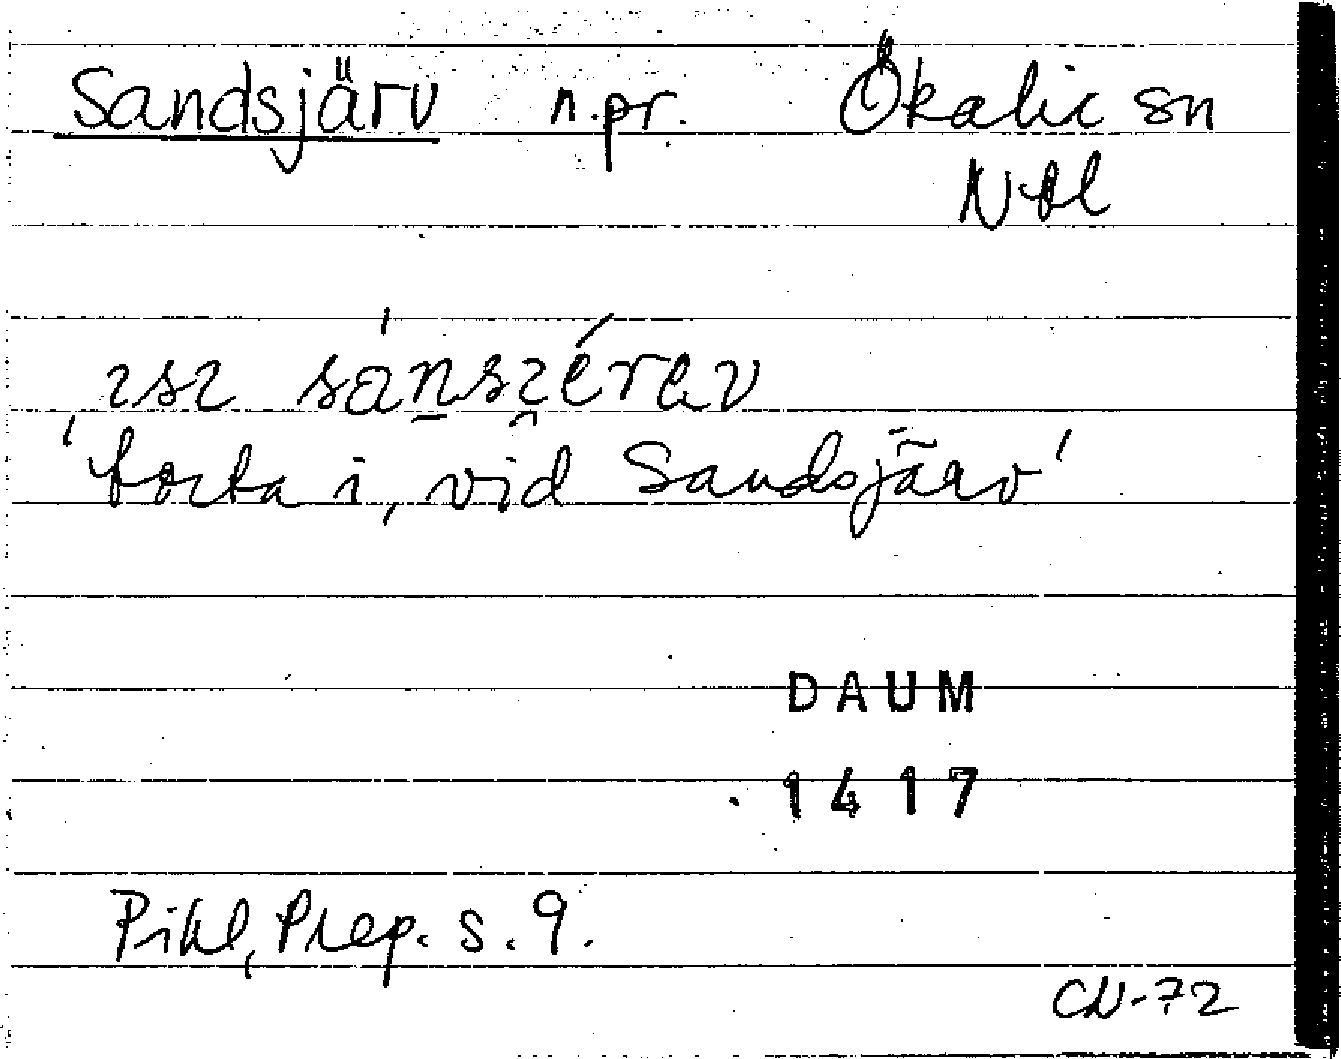 Sandsjärv n.pr. Ökalix sn
Nbl
ɩsɩ sánsɩérəv
'borta i, vid Sandsjärv'
DAUM
1417
Pihl, Prep. s. 9.
CN-72